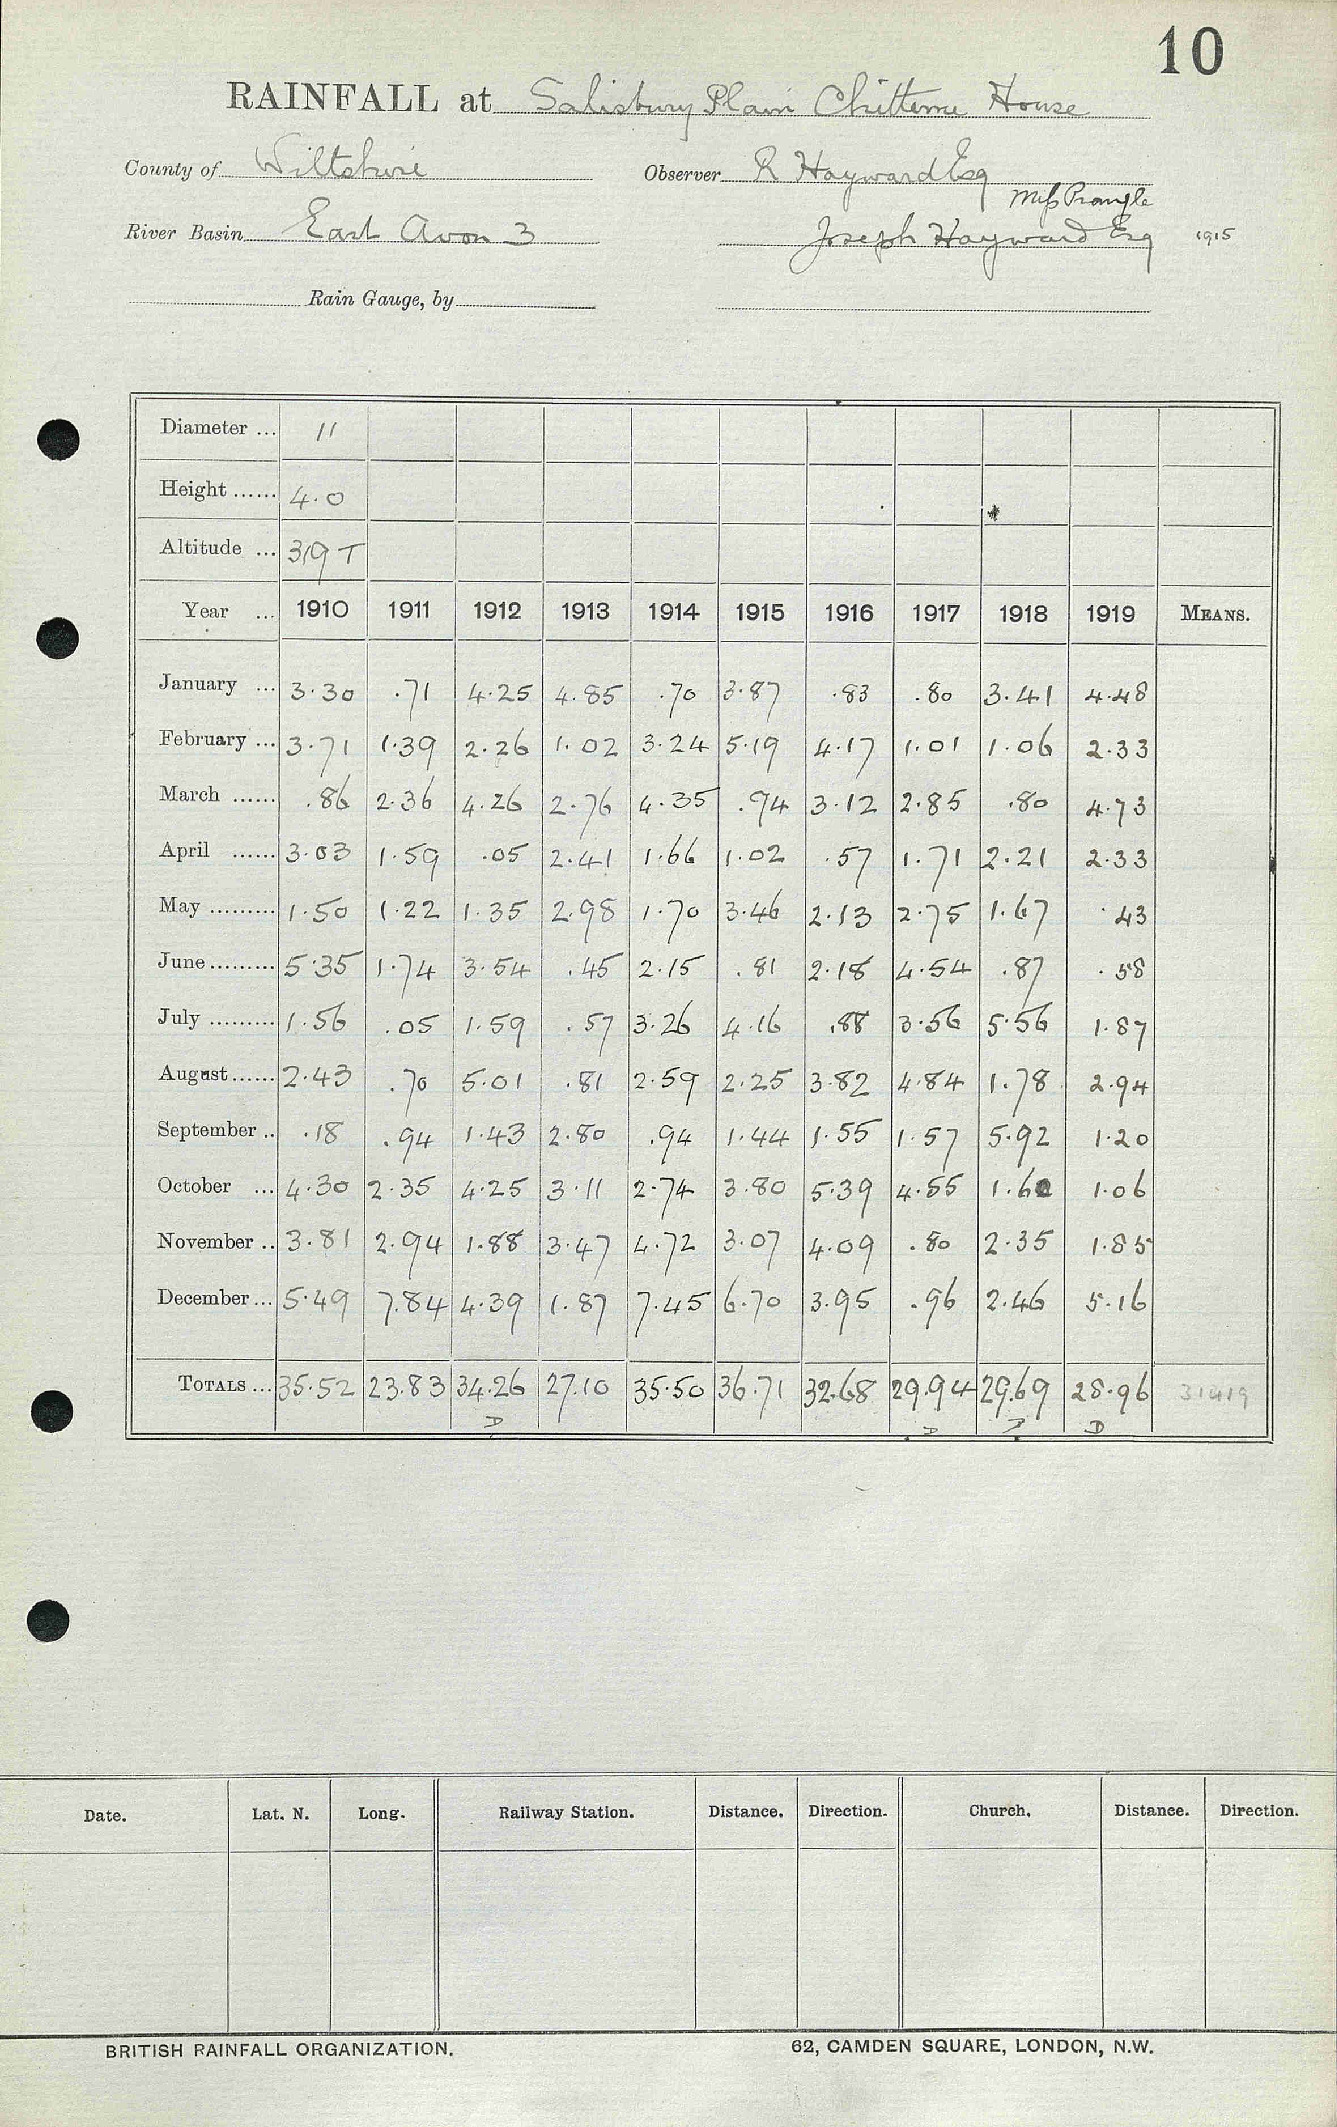 10
RAINFALL at Salisbury Plain Chitterne House
County of Wiltshire Observer R Hayward Esq
Miss Prangle
River Basin East Avon 3 Joseph Hayward Esq 1915
Rain Gauge, by
Diameter ... 11
Height ...... 4.0
Altitude ... 319 T
Year ... 1910 1911 1912 1913 1914 1915 1916 1917 1918 1919 MEANS.
January ... 3.30 .71 4.25 4.85 .70 3.87 .83 .80 3.41 4.48
February ... 3.71 1.39 2.26 1.02 3.24 5.19 4.17 1.01 1.06 2.33
March ...... .86 2.36 4.26 2.76 4.35 .94 3.12 2.85 .80 4.73
April ...... 3.03 1.59 .05 2.41 1.66 1.02 .57 1.71 2.21 2.33
May ......... 1.50 1.22 1.35 2.98 1.70 3.46 2.13 2.75 1.67 .43
June ......... 5.35 1.74 3.54 .45 2.15 .81 2.18 4.54 .87 .58
July ......... 1.56 .05 1.59 .57 3.26 4.16 .88 3.56 5.56 1.87
August ...... 2.43 .70 5.01 .81 2.59 2.25 3.82 4.84 1.78 2.94
September .. .18 .94 1.43 2.80 .94 1.44 1.55 1.57 5.92 1.20
October ... 4.30 2.35 4.25 3.11 2.74 3.80 5.39 4.55 1.60 1.06
November .. 3.81 2.94 1.88 3.47 4.72 3.07 4.09 .80 2.35 1.85
December ... 5.49 7.84 4.39 1.87 7.45 6.70 3.95 .96 2.46 5.16
TOTALS ... 35.52 23.83 34.26 27.10 35.50 36.71 32.68 29.94 29.69 28.96 31419
D D D D
Date. Lat. N. Long. Railway Station. Distance. Direction. Church. Distance. Direction.
BRITISH RAINFALL ORGANIZATION. 62, CAMDEN SQUARE, LONDON, N.W.